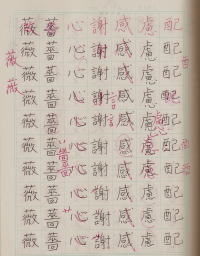 配配配配配配配配配配
慮慮慮慮慮慮慮慮慮慮
感感感感感感感感感感
謝謝謝謝謝謝謝謝謝謝
心心心心心心心心心心
薔薔薔薔薔薔薔薔薔薔
薇薇薇薇薇薇薇薇薇薇